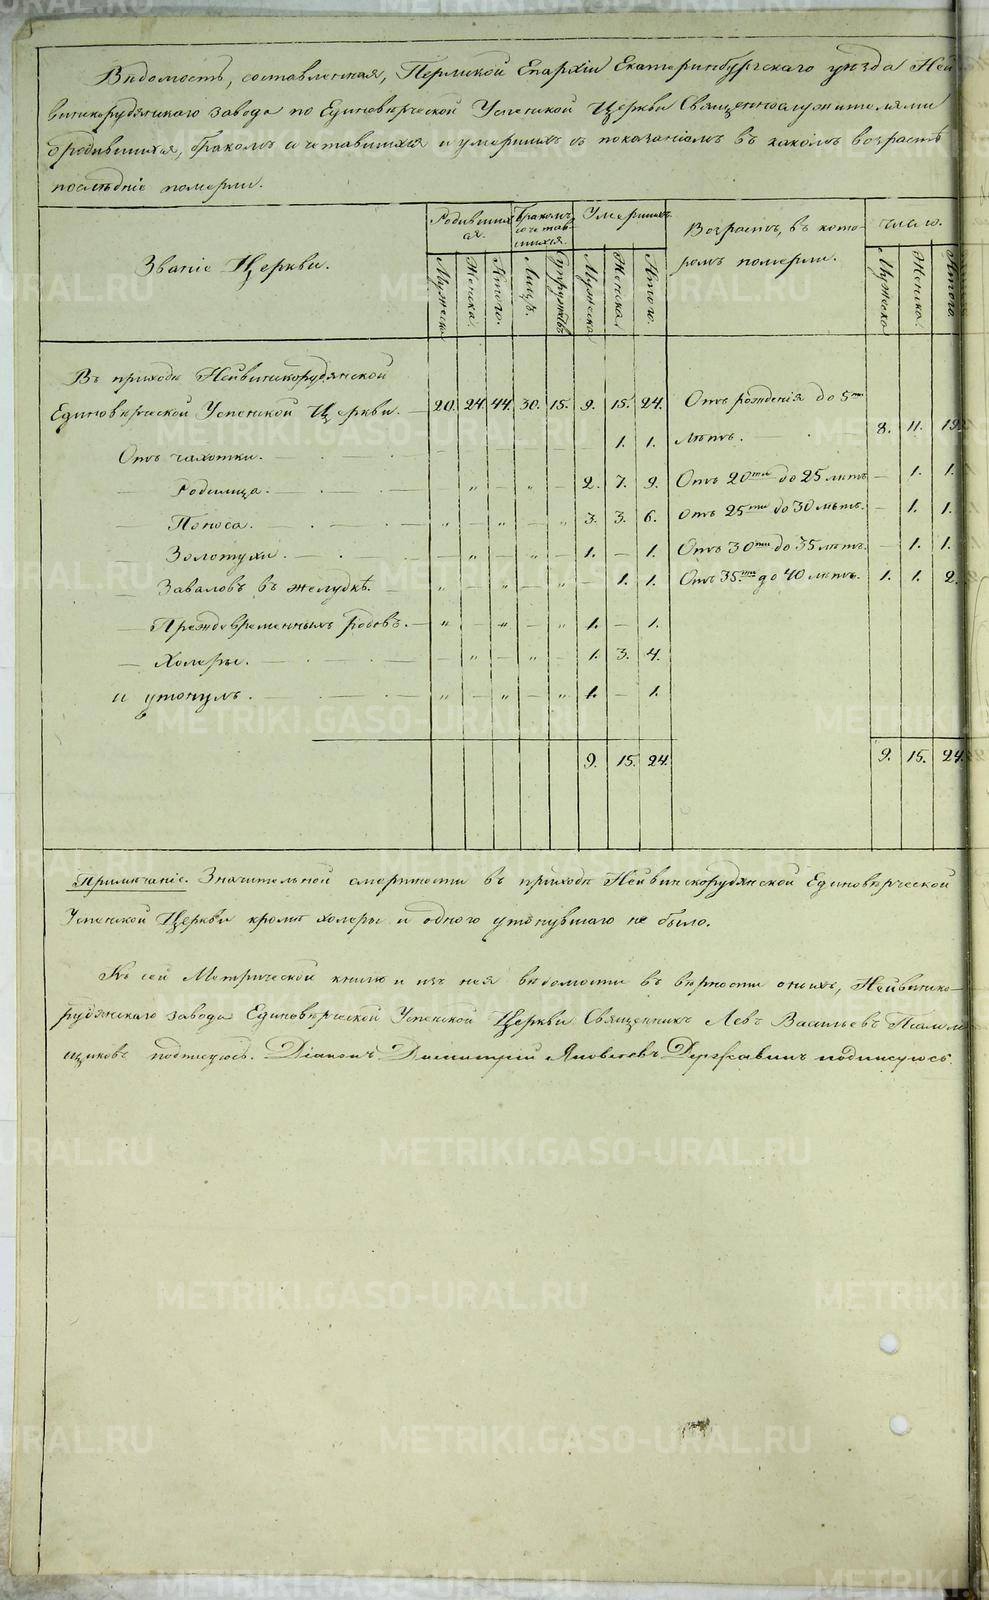 Вѣдомость, составленная, Пермской Епархіи Екатеринбургскаго уѣзда Ней-
винскорудянскаго завода по Единовѣрческой Успенской Церкви Священнослужителями
о родившихся, бракомъ сочетавшихся и умершихъ съ показаніемъ въ какомъ возрастѣ
послѣдніе померли.
Званіе Церкви.
Родивших-
ся.
Бракомъ
сочетав-
шихся.
Умершихъ.
Возрастъ, въ кото-
ромъ померли.
число.
Мужеска Женска. Итого. Лицъ. Супружествъ Мужеска Женска. Итого. Мужеска Женска. Итого
Въ приходѣ Нейвинскорудянской
Единовѣрческой Успенской Церкви. — 20. 24. 44. 30. 15. 9. 15. 24. Отъ рожденія до 5ти
лѣтъ. — 8. 11. 19.
Отъ чахотки. — 1. 1.
— Родимца. — 2. 7. 9. Отъ 20ти до 25 лѣтъ — 1. 1.
— Поноса. — 3. 3. 6. Отъ 25ти до 30 лѣтъ. — 1. 1.
— Золотухи. — 1. — 1. Отъ 30ти до 35 лѣтъ. — 1. 1.
— Заваловъ въ желудкѣ. — 1. 1. Отъ 35ти до 40 лѣтъ. 1. 1. 2.
— Преждевременныхъ родовъ. — 1. — 1.
— Холеры. — 1. 3. 4.
и утонулъ. — 1. — 1.
9. 15. 24. 9. 15. 24.
Примѣчаніе. Значительной смертности въ приходѣ Нейвинскорудянской Единовѣрческой
Успенской Церкви кромѣ холеры и одного утонувшаго не было.
Къ сей Метрической книгѣ и изъ нея вѣдомости въ вѣрности оныхъ, Нейвинско-
рудянскаго завода Единовѣрческой Успенской Церкви Священникъ Левъ Васильевъ Псалом-
щиковъ подписуюсь. Діаконъ Димитрій Яковлевъ Державинъ подписуюсь.
METRIKI.GASO-URAL.RU